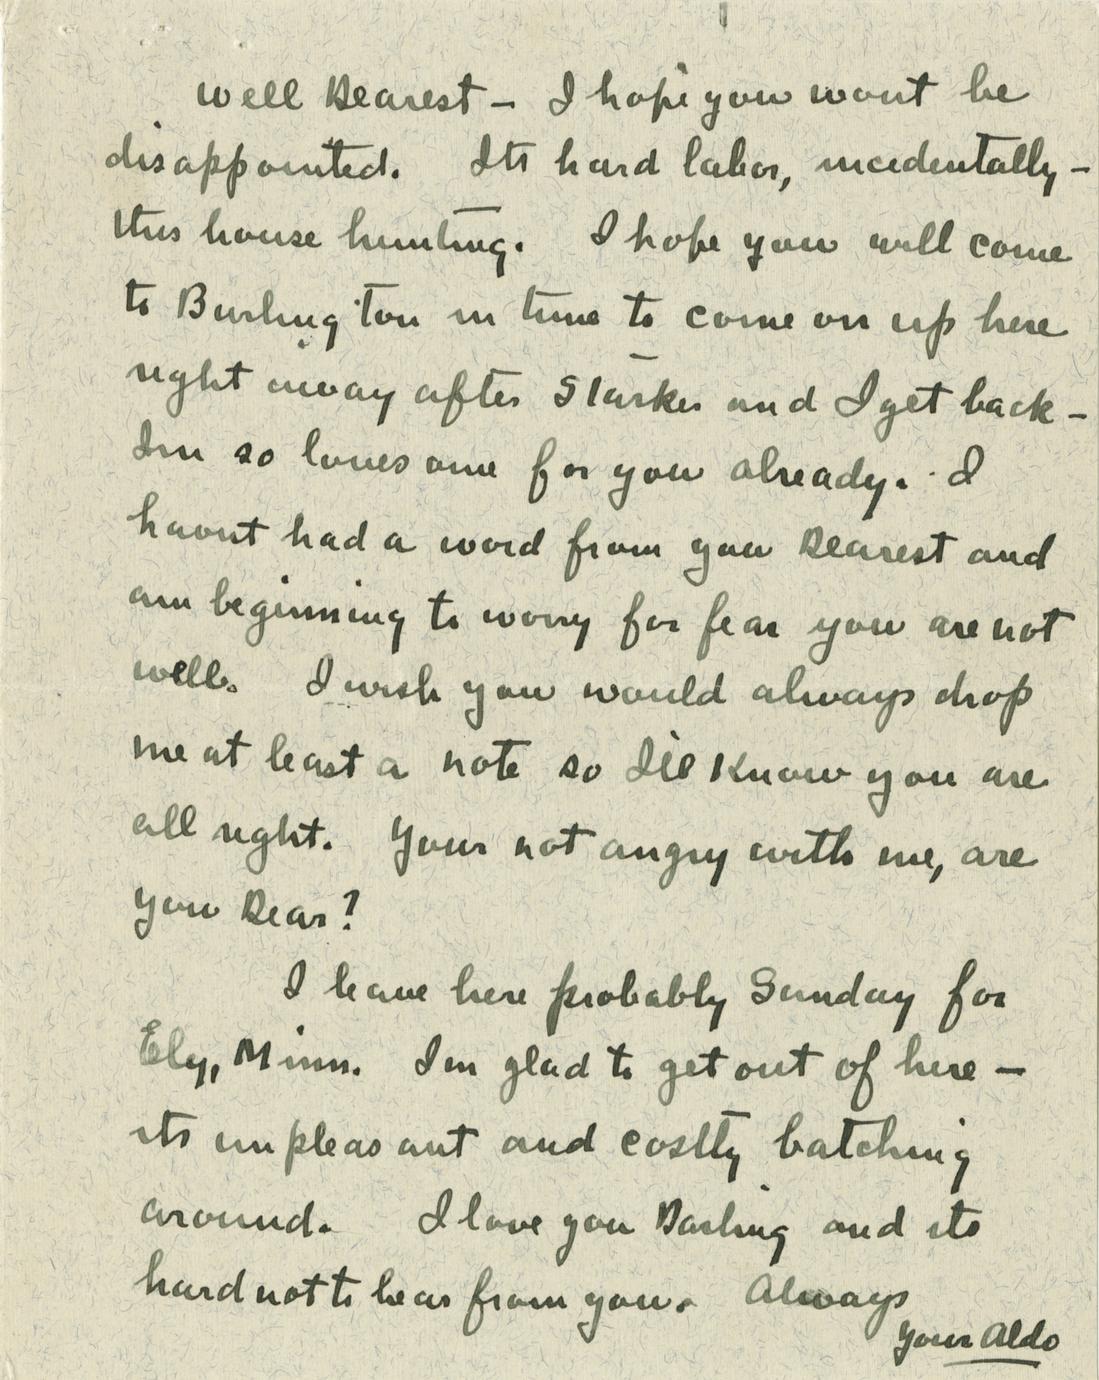 Well Dearest — I hope you wont be
disappointed. Its hard labor, incidentally —
this house hunting. I hope you will come
to Burlington in time to come on up here
right away after Starker and I get back —
Im so lonesome for you already. I
havnt had a word from you Dearest and
am beginning to worry for fear you are not
well. I wish you would always drop
me at least a note so Ill know you are
all right. Your not angry with me, are
you Dear?
I leave here probably Sunday for
Ely, Minn. Im glad to get out of here —
its unpleasant and costly batching
around. I love you Darling and its
hard not to hear from you. Always
Your Aldo